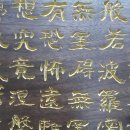 般若波羅
無罣礙無
有恐怖遠
想究竟涅